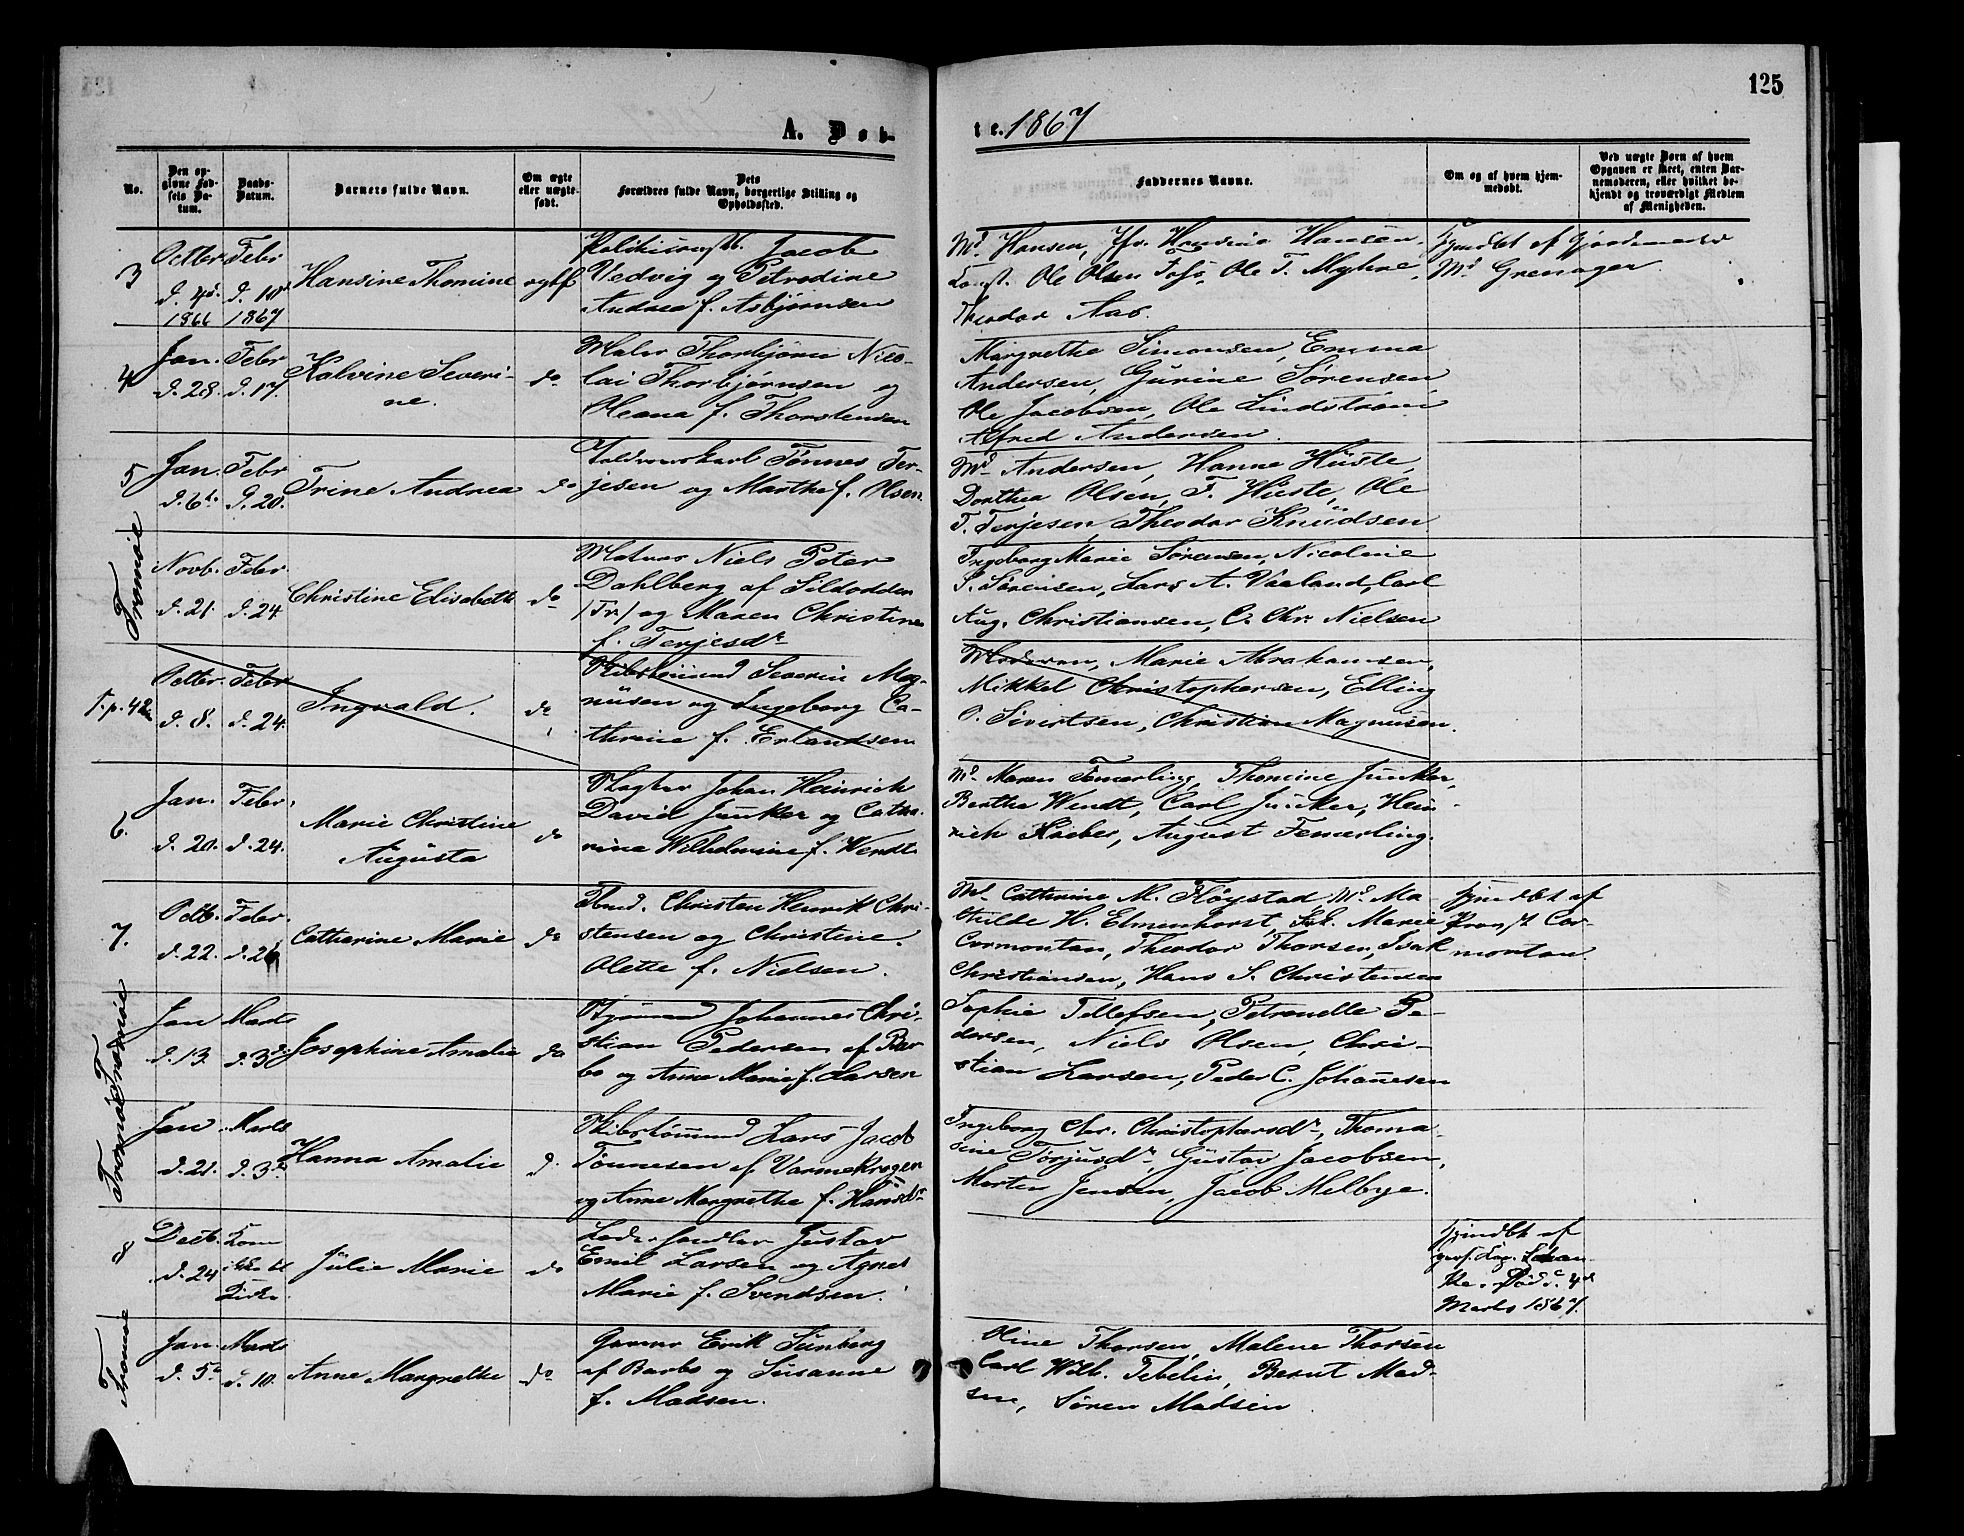 125
A. Døb-
te. 1867
No.
Den op-
givne Fød-
sels Da-
tum.
Daabs-
Datum.
Barnets fulde Navn.
Om ægte
eller uægte-
født.
Dets
Forældres fulde Navn, borgerlige Stilling og
Opholdssted.
Faddernes Navne.
Om og af hvem hjem-
medøbt.
Ved uægte Børn af hvem
Opgaven er skeet, enten Bar-
nemoderen, eller hvilket be-
kjendt og troværdigt Medlem
af Menigheden.
3
Octbr
d. 4d.
1866
Febr
d. 10d
1867
Hansine Thomine
ægtf
Jacob
Vedvig og Petrodine
Andrea f. Asbjørnsen
Md. Hansen, Jfr. Hansine Hansen,
Const. Ole Olsen Foss, Ole T. Myhre,
Theodor Aas.
Hjmdbt af Gjordemoder
Md. Grenager.
4
Jan.
d. 28.
Febr
d. 17.
Kalvine Severi-
ne.
do
Maler Thorbjørn Nico-
lai Thorbjørnsen og
Oleana f. Thorstensen
Margrethe Simonsen, Emma
Andersen, Gurine Sørensen
Ole Jacobsen, Ole Lindstrøm
Alfred Andersen.
5
Jan.
d. 6te
Febr
d. 20.
Trine Andrea
do
Tønnes Ter-
jesen og Marthe f. Olsen
Md. Andersen, Hanne Huste,
Dorthea Olsen, T. Huste, Ole
T. Terjesen, Theodor Knudsen
Tromøe
Novb.
d. 21.
Febr
d. 24
Christine Elisabeth
do
Matros Niels Peter
Dahlberg af Sildodden
/Tr/ og Maren Christine
f. Terjesdr
Ingeborg Marie Sørensen, Nicoline
S. Sørensen, Lars A. Vaaland, Carl
Aug. Christiansen, C. Chr. Nielsen
T. p. 42
Octbr.
d. 8.
Febr
d. 24.
Ingvald.
do
Skibstømmd Severin Mag-
nusen og Ingeborg Ca-
thrine f. Erlandsen
Moderen, Marie Abrahamsen,
Mikkel Christophersen, Elling
O. Sivertsen, Christian Magnusen.
6.
Jan.
d. 20.
Febr.
d. 24.
Marie Christine
Augusta
do
Slagter Johan Heinrich
David Junker og Catha-
rina Wilhelmine f. Wendt
Md. Maren Femerling, Thomine Junker,
Bertha Wendt, Carl Juncker, Hein-
rich Kaeber, August Femerling.
7.
Octb.
d. 22.
Febr.
d. 26
Catharine Marie
do
Christen Henrik Chri-
stensen og Christine
Olette f. Nielsen.
Md. Cathrine M. Fløystad, Md. Ma
thilde H. Elmenhorst, Frk. Marie
Cormontan, Theodor Thorsen, Isak
Christiansen, Hans S. Christensen
Hjmdbt af
Provst Cor-
montan
Tromøe
Jan
d. 13.
Marts
d. 3d
Josephine Amalie
do
Styrmand Johannes Chri-
stian Pedersen af Bar-
bo og Anne Marie f. Larsen
Sophie Tellefsen, Petronelle Pe-
dersen, Niels Olsen, Chri-
stian Larsen, Peder C. Johannesen
Tromøe
Jan.
d. 21.
Marts
d. 3d
Hanna Amalie
d.
Skibstømmd Lars Jacob
Tønnesen af Varmekrogen
og Anne Margrethe f. Hansdr
Ingeborg Chr. Christophersdr, Thoma-
sine Torjusdr, Gustav Jacobsen,
Morten Jensen, Jacob Melbye.
8
Decb.
d. 24
Kom
ikke til
Kirke.
Julie Marie
do
Læderhandler Gustav
Emil Larsen og Agnes
Marie f. Svendsen.
Hjmdbt af
Død d. 4d
Marts 1867.
Tromøe
Jan
d. 5te
Marts
d. 10.
Anne Margrethe
do
Garver Erik Sunberg
af Barbo og Susanne
f. Madsen.
Oline Thorsen, Malene Thorsen
Carl Wilh. Tebelin, Bernt Mad-
sen, Søren Madsen